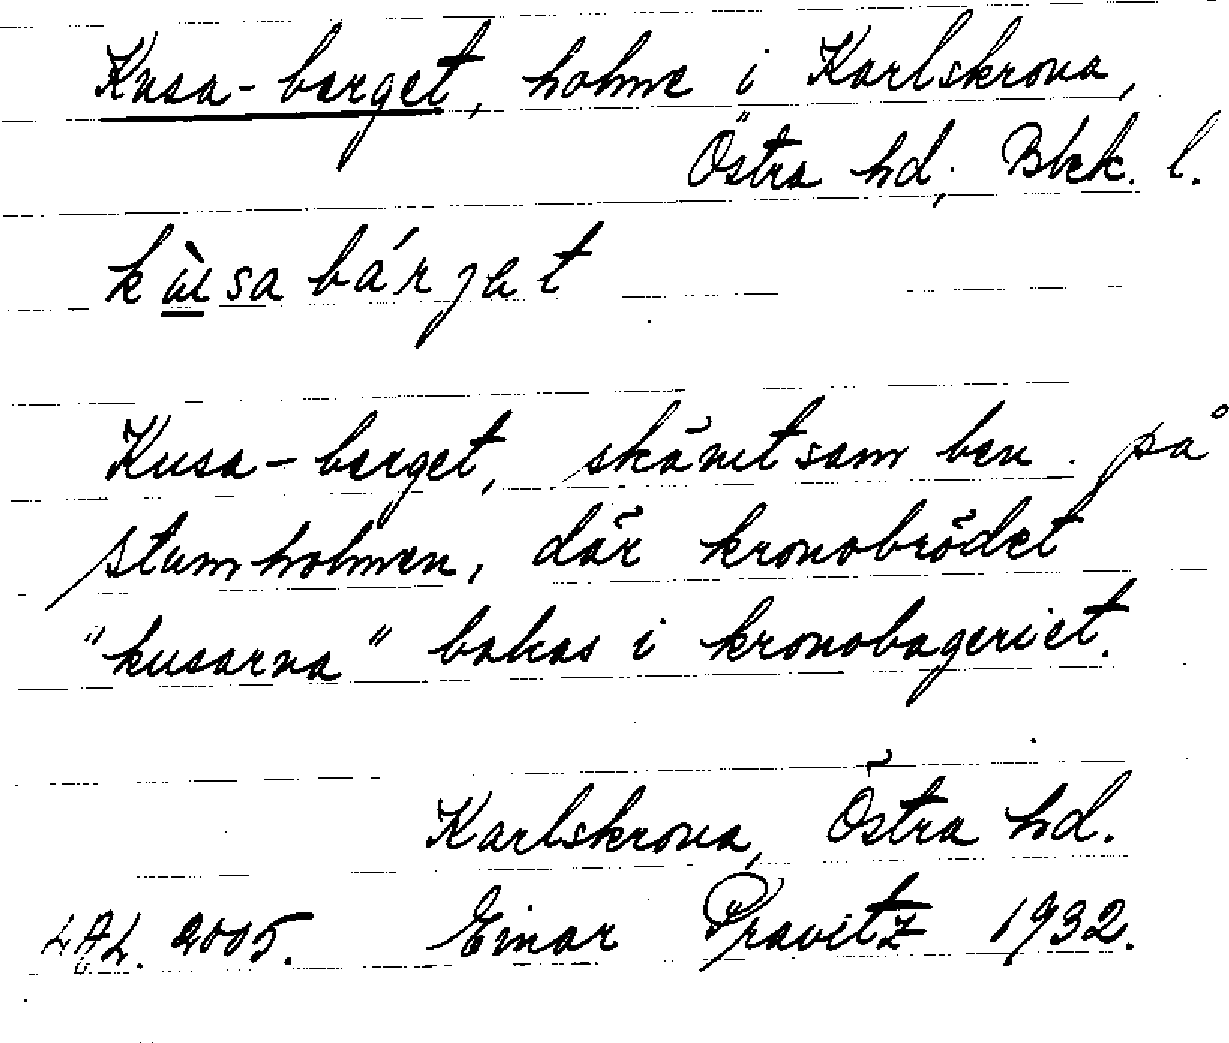 Kusa-berget, holme i Karlskrona,
Östra hd, Blek. l.
kùsabárjet
Kusa-berget, skämtsam ben. på
stumholmen, där kronobrödet
"kusarna" bakas i kronobageriet.
Karlskrona, Östra hd.
LAL. 2005. Einar Pravitz 1932.